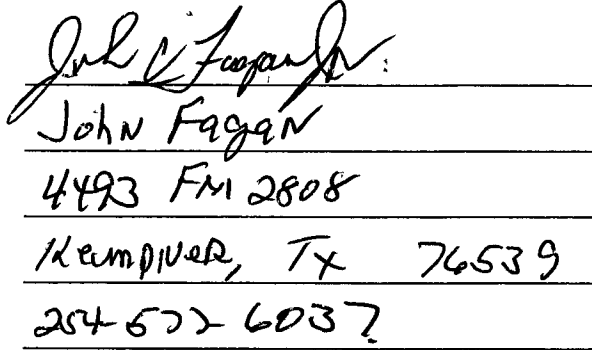 John C Fagan Jr.
John Fagan
4493 FM 2808
Kempner, Tx 76539
254-577-6037